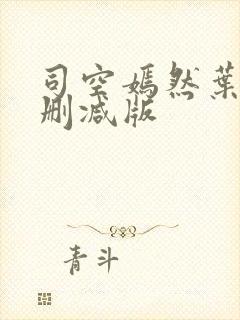 司空嫣然葉
刪减版
青斗